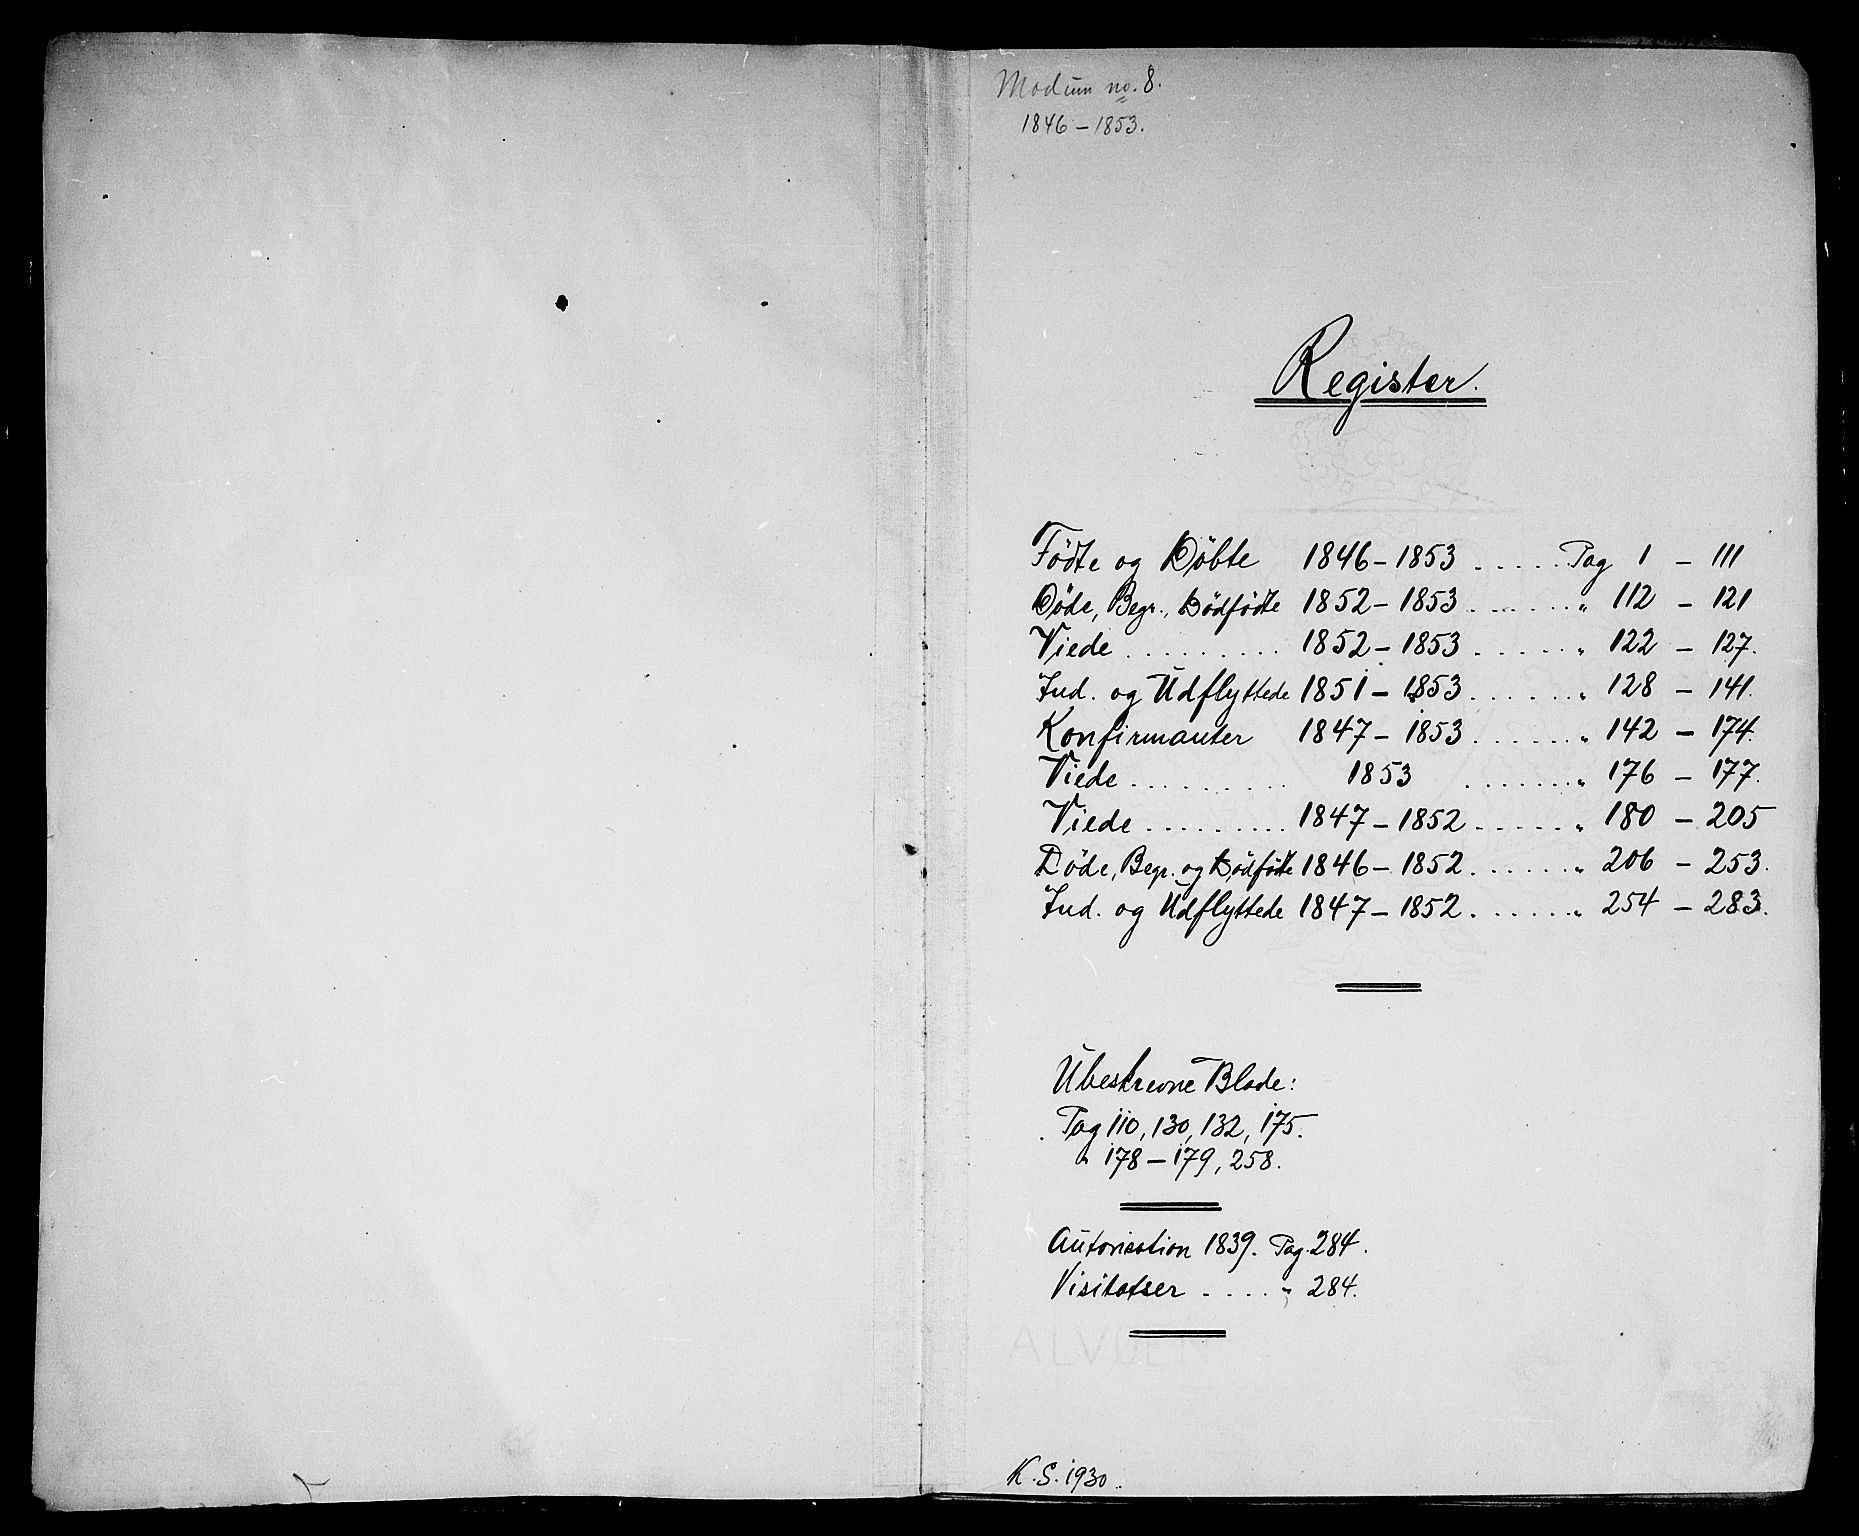 Modum no. 8.
1846 – 1853.
Register.
Födte og Döbte 1846 – 1853 ..... Pag 1 – 111
Döde, Begr., Dödfödte 1852 – 1853 ...... " 112 – 121
Viede ......... 1852 – 1853 ..... " 122 – 127.
Ind. og Udflyttede 1851 – 1853 ...... " 128 – 141.
Konfirmanter 1847 – 1853 ...... " 142 – 174.
Viede .......... 1853 ...... " 176 – 177.
Viede ......... 1847 – 1852 ..... " 180 – 205
Döde, Begr. og Dödfödte 1846 – 1852 ...... " 206 – 253.
Ind. og Udflyttede 1847 – 1852 ...... " 254 – 283.
Ubeskrevne Blade:
Pag 110, 130, 132, 175.
" 178 – 179, 258.
Autorisation 1839. Pag. 284.
Visitatser .... " 284.
ALVØEN
K. S. 1930.